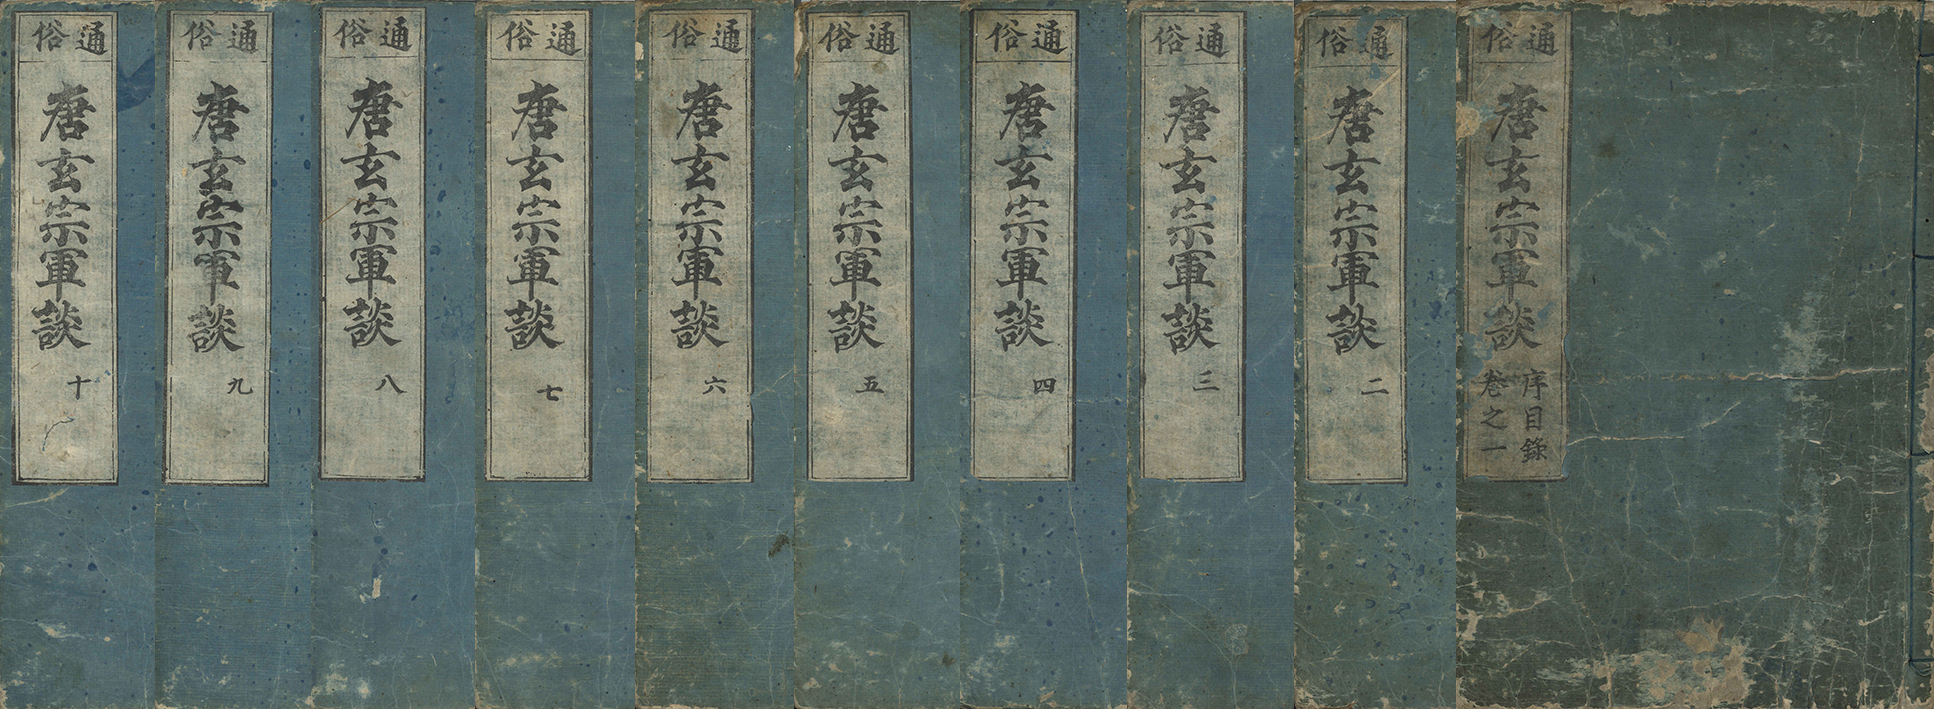 通俗
唐玄宗軍談
序目錄
卷之一
通俗
唐玄宗軍談
二
通俗
唐玄宗軍談
三
通俗
唐玄宗軍談
四
通俗
唐玄宗軍談
五
通俗
唐玄宗軍談
六
通俗
唐玄宗軍談
七
通俗
唐玄宗軍談
八
通俗
唐玄宗軍談
九
通俗
唐玄宗軍談
十